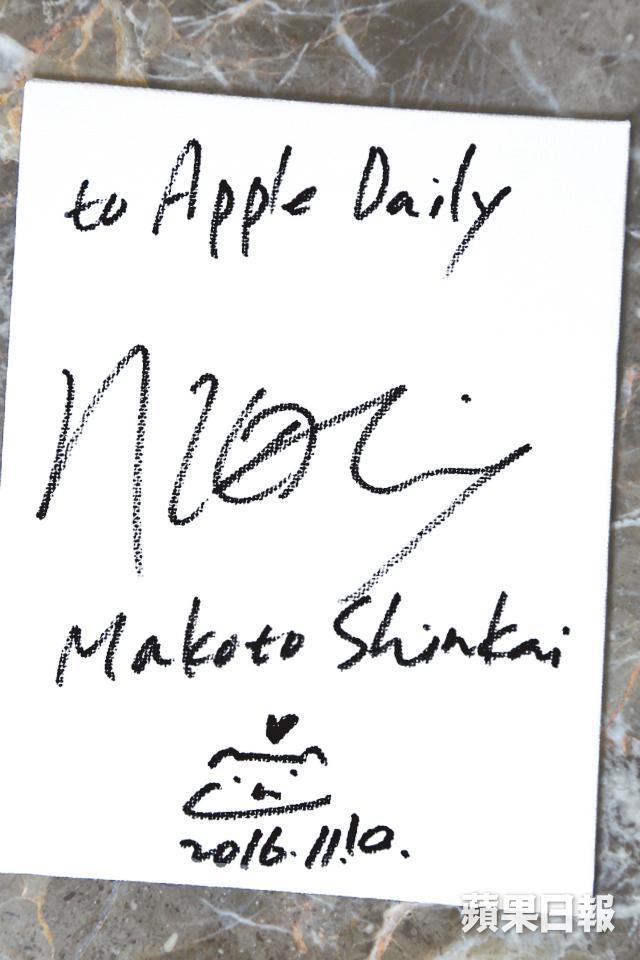 to Apple Daily
Makoto Shinkai
2016.11.10.
蘋果日報